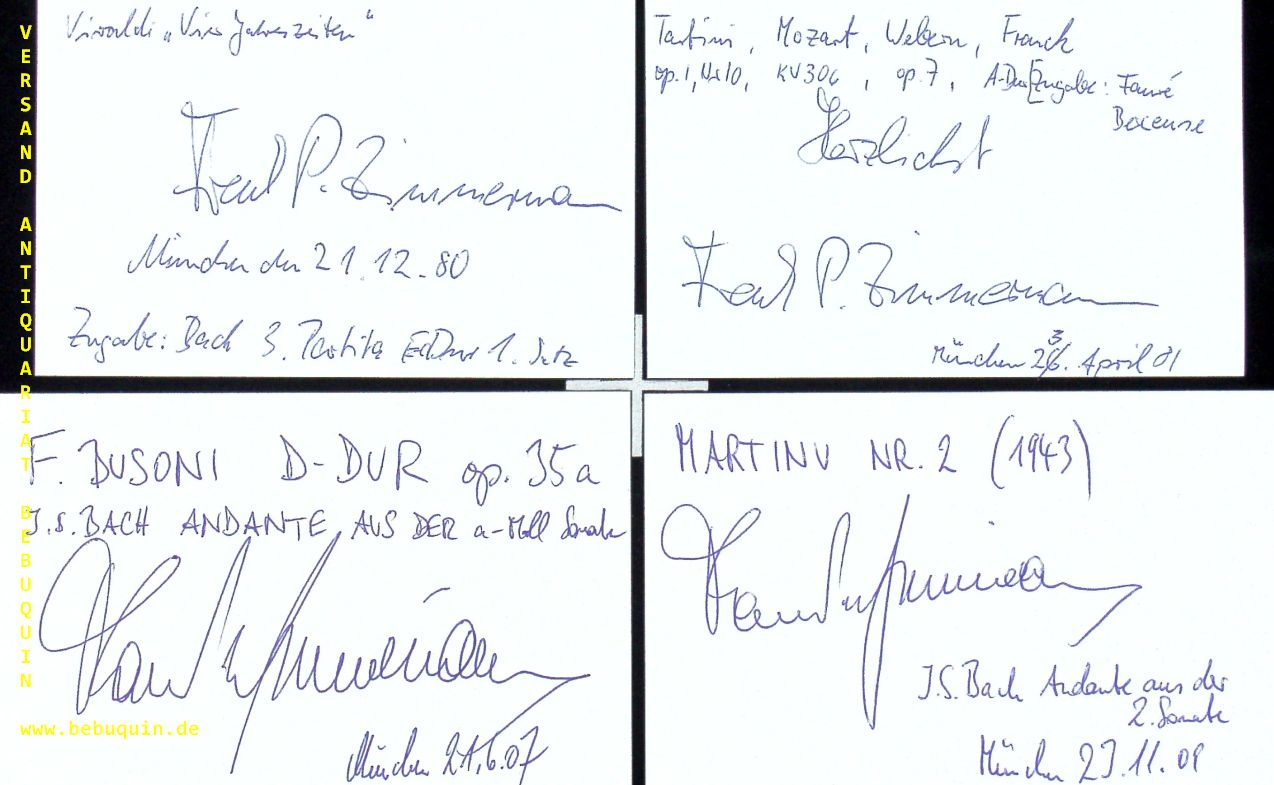 VERSAND ANTIQUARIAT BEBUQUIN
www.bebuquin.de
Vivaldi „Vier Jahreszeiten"
Frank P. Zimmermann
München den 21.12.80
Zugabe: Bach 3. Partita E-Dur 1. Satz
Tartini, Mozart, Webern, Franck
op.1, Nr 10, KV 306, op.7, A-Dur Zugabe: Fauré
Berceuse
Herzlichst
Frank P. Zimmermann
München 23. April 81
F. BUSONI D-DUR op. 35a
J.S. BACH ANDANTE AUS DER a-Moll Sonate
Frank P. Zimmermann
München 21.6.07
MARTINU NR. 2 (1943)
Frank P. Zimmermann
J.S. Bach Andante aus der
2. Sonate
München